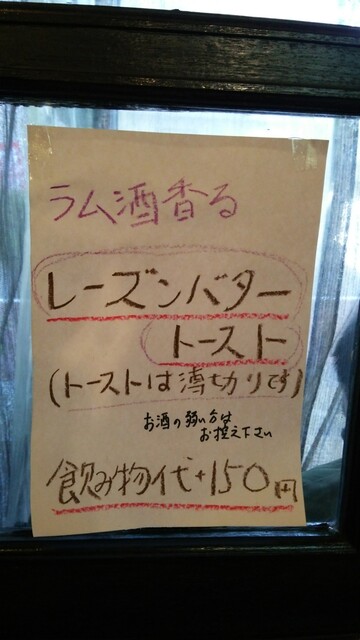 ラム酒香る
レーズンバター
トースト
(トーストは薄切りです)
お酒の弱い方は
お控え下さい
飲み物代+150円